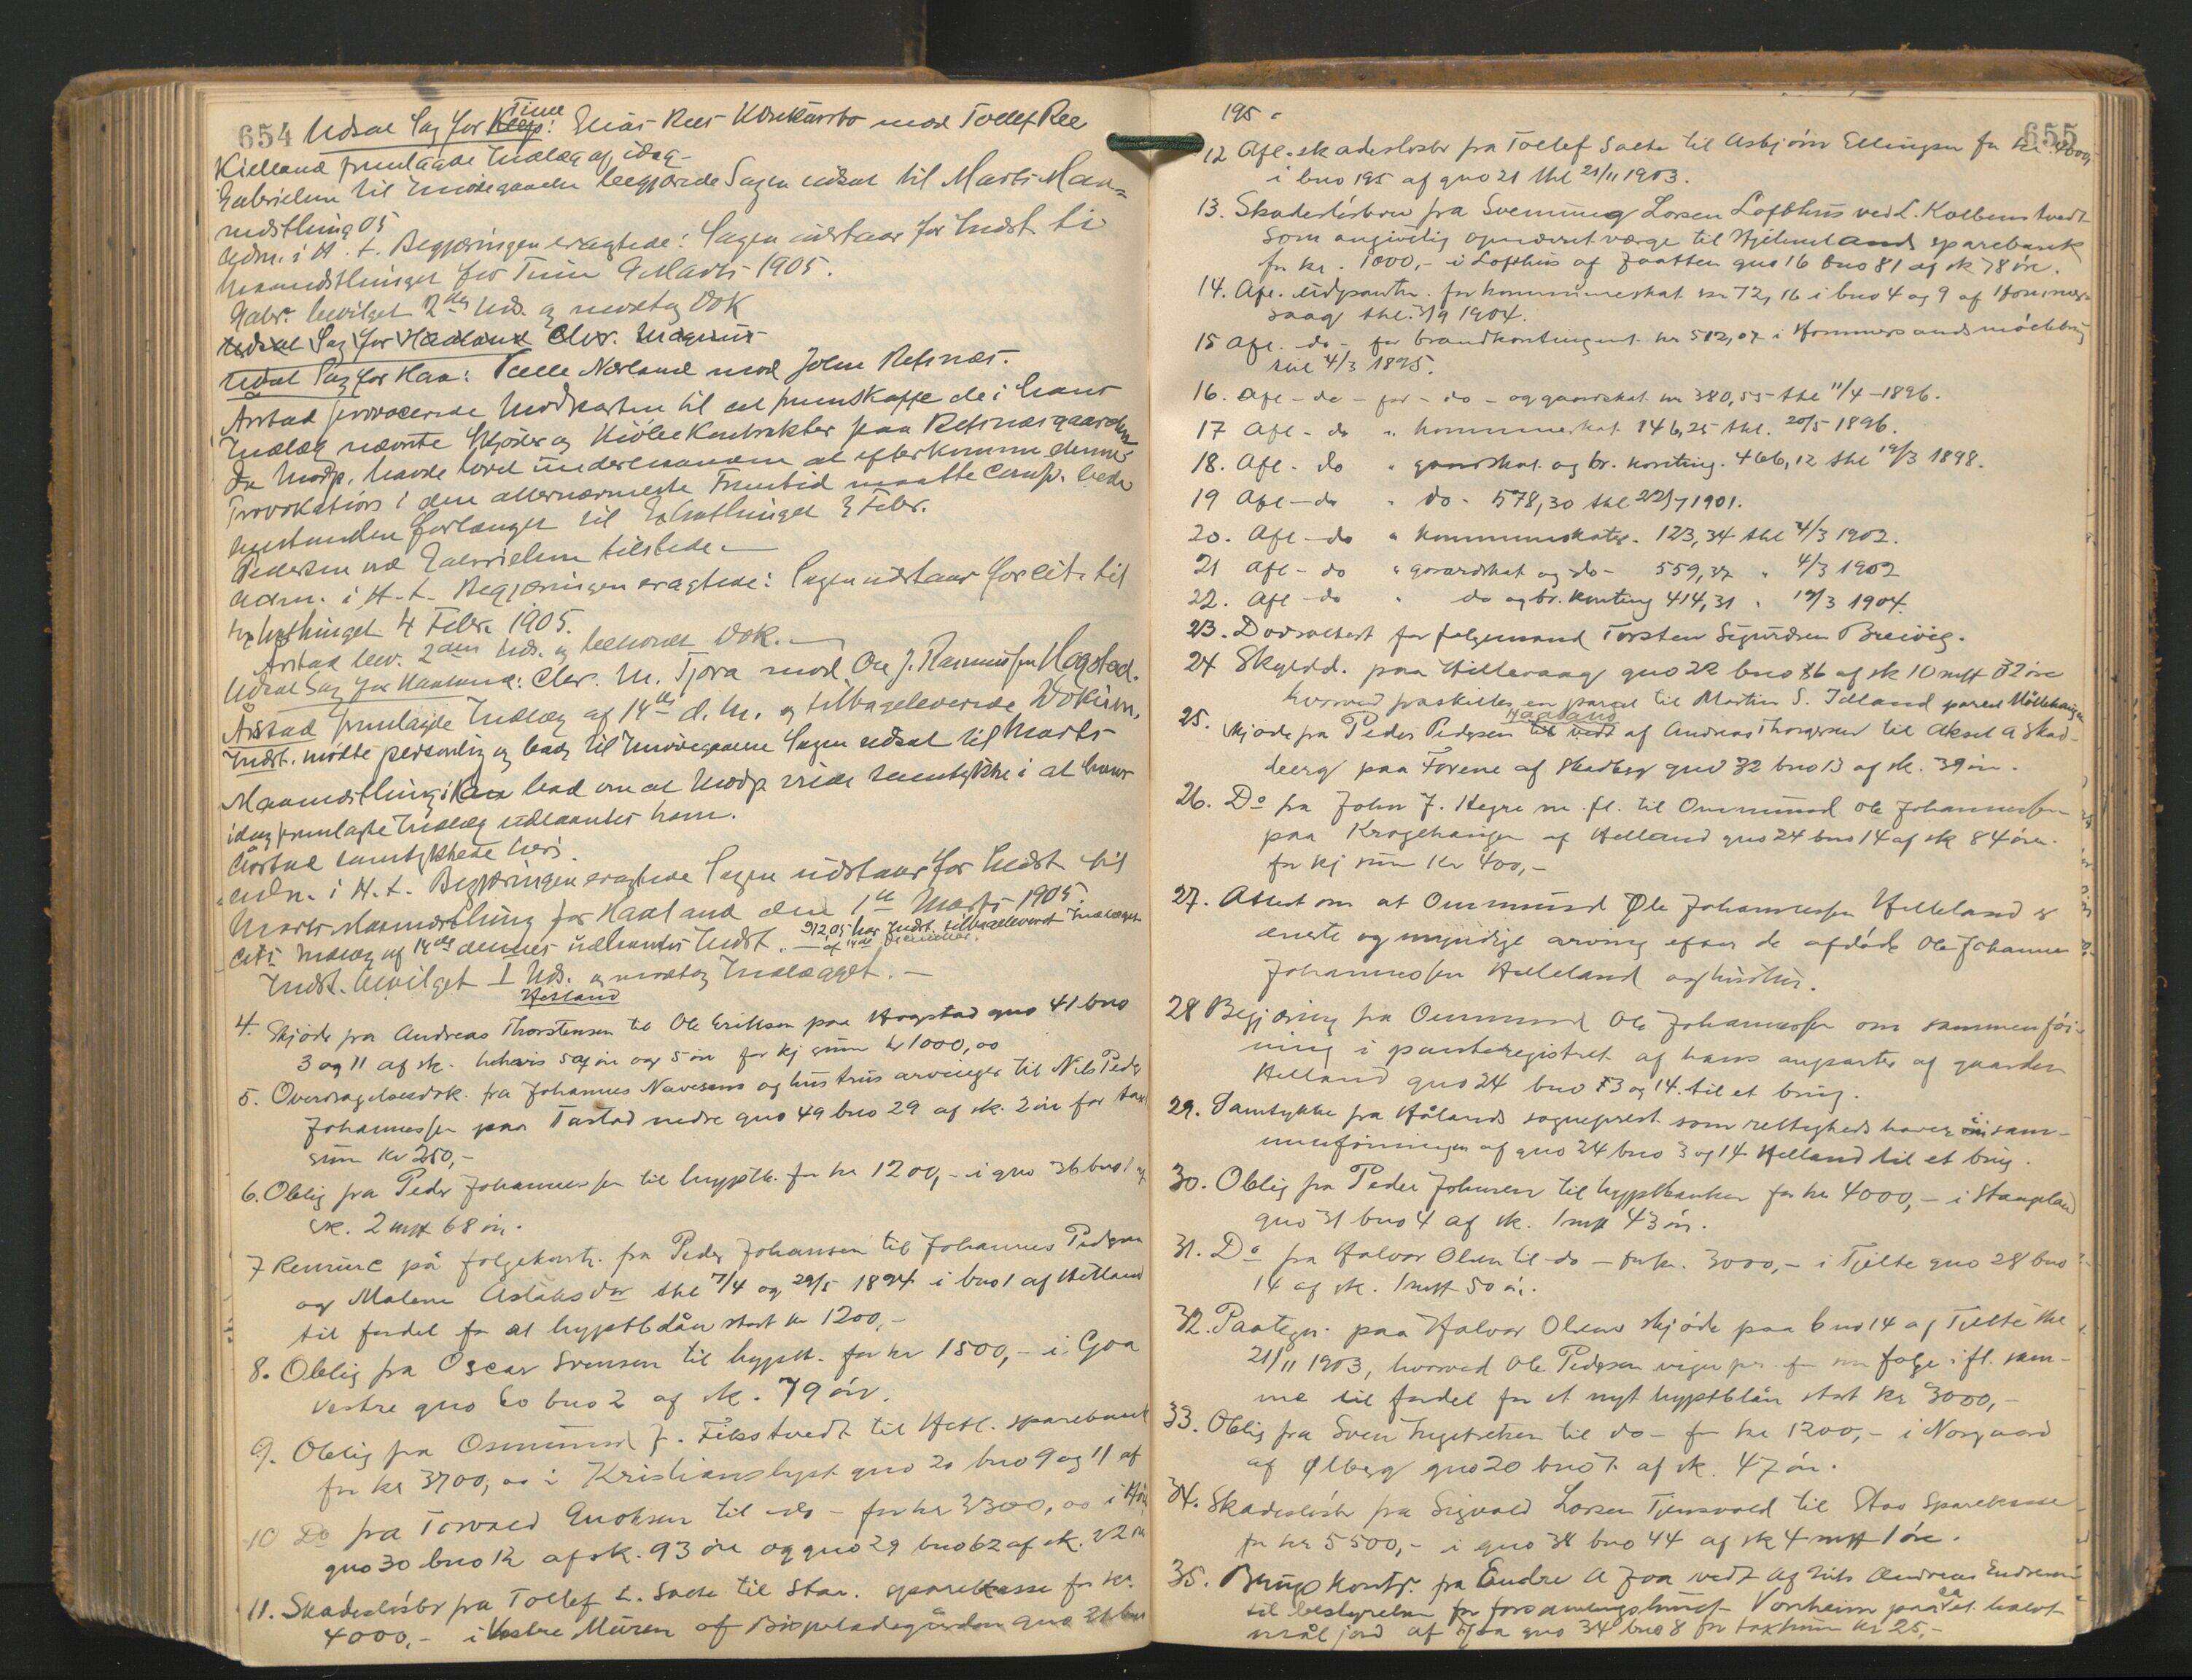 654 Udsat Sag for Time: Elias Rees Konkursbo mod Tollef Ree
Kielland fremlagde Indlæg af idag.
Gabrielsen til Imødegaaelse begjærede Sagen udsat til Marts Man-
nedsthing 05
Adm. i H. t. Begjæringen eragtede: Sagen udstaar for Indst. til
Maanedsthinget for Time 9 Marts 1905.
Gabr. bevilget 2den Uds. og modtog Dok
Udsat Sag for Haaland Chr. Magnus
Udsat Sag for Haa: Tælle Nærland mod John Refsnæs.
Årstad provocerede Modparten til at fremskaffe de i hans
Indlæg nævnte Skjøder og Kiøbekontrakter paa Refsnæsgaarden
Da Modp. havde lovet underhaanden at efterkomme denne
Provokation i den allernærmeste Fremtid maatte Comp. bede
Gabrielsen tilstede.
Adm. i H. t. Begjæringen eragtede: Sagen udstaar for Cit. til
Extrathinget 4 Febr. 1905.
Årstad bev. 2den Uds. og beholdt Dok.
Udsat Sag for Haaland: Chr. M. Tjora mod Ole J. Rasmussen Hogstad.
Årstad fremlagde Indlæg af 14de d. M. og tilbageleverede Dokum.
Indst. mødte personlig og bad til Imødegaaelse Sagen udsat til Marts
Maanedsthing i Haa bad om at Modp vilde samtykke i at hans
idag fremlagte Indlæg udlaantes ham.
Årstad samtykkede heri.
Adm. i H. t. Begjæringen eragtede Sagen udstaar for Indst. til
Marts Maanedsthing for Haaland den 1ste Marts 1905.
Cits Indlæg af 14de dennes udlaantes Indst. 9/2 05 har Indst. tilbageleveret Indlæget
af 14de December.
Indst. bevilget I Uds. og modtog Indlægget.
Hetland
4. Skjøde fra Andreas Thorstensen til Ole Eriksen paa Hogstad gno 41 bno
3 og 11 af sk. hchvis 59 øre og 5 øre for kj sum kr 1000,00
5. Overdragelsesdok. fra Johannes Navesens og hustrus arvinger til Nils Peder
Johannessen paa Tastad nedre gno 49 bno 29 af sk. 2 øre for tax
sum kr 250,-
6. Oblig fra Peder Johannessen til hypbk. for kr 1200,- i gno 36 bno 1 af
sk. 2 mrk 68 øre.
7 Renunc på følgekontr. fra Peder Johansen til Johannes Pedersen
og Malene Aslaksdr thl 7/4 og 29/5 1894 i bno 1 af Hetland
til fordel for et hyptblån stort kr 1200,-
8. Oblig fra Oscar Svensen til hypbk. for kr 1500,- i Goa
vestre gno 60 bno 2 af sk. 79 øre.
9. Oblig fra Osmund J. Fikstvedt til Hetl. sparebank
for kr 3700,00 i Kristianslyst gno 20 bno 9 og 11 af
10 Do fra Torvald Enoksen til do - for kr 2300,00 i
gno 30 bno 12 af sk. 93 øre og gno 29 bno 62 af sk. 22 øre
11. Skadesløsbr fra Tollef L. Sæthe til Stav. sparekasse for kr.
4000,- i Vestre Muren af Bispeladegården gno 21 bno
195.
655
12 Afl. skadesløsbr fra Tollef Sæthe til Asbjørn Ellingsen for kr. 4000,-
i bno 195 af gno 21 thl 21/11 1903.
13. Skadesløsbrev fra Svenning Larsen Lofthus ved L. Kolbenstvedt
som angivelig opnævnt værge til Hjelmelands sparebank
for kr. 1000,- i Lofthus af Jaatten gno 16 bno 81 af sk 78 øre.
14. Afl. udpantn. for kommuneskat kr 72,16 i bno 4 og 9 af
saag thl. 3/9 1904.
15 Afl. do - for brandkontingent kr 512,07 i Hommersandsmøllebrug
thl 4/3 1895.
16. Afl - do - for - do - og gaardskat kr 380,55 thl 11/4 - 1896.
17 Afl - do " kommuneskat 146,25 thl. 20/5 1896.
18. Afl - do " gaardskat og br. konting. 466,12 thl 19/3 1898.
19 Afl - do " do - 578,30 thl 22/7 1901.
20. Afl - do " kommuneskatr. 123,34 thl 4/3 1902.
21 Afl - do " gaardskat og do - 559,37 " 4/3 1902
22. Afl - do " do og br. konting 414,31 " 19/3 1904.
23. Dødsattest for følgemand Torsten Sigurdsen Breivig.
24 Skyldd. paa Hillevaag gno 22 bno 86 af sk 10 mrk 82 øre
hvorved fraskilles en parcel til Martin S. Idland parcel Møllehaugen
Haaland
25. Skjøde fra Peder Pedersen til vedt af Andreas Thorgersen til Aksel A Skad-
berg paa Forene af Skadberg gno 32 bno 13 af sk. 39 øre.
26. Do fra John J. Hegre m. fl. til Ommund Ole Johannessen
paa Kragehaugen af Helland gno 24 bno 14 af sk 84 øre.
for kj sum kr 400,-
27. Attest om at Ommund Ole Johannessen Helleland er
eneste og myndige arving efter de afdøde Ole Johannes
Johannessen Helleland og hustru.
28 Begjæring fra Ommund Ole Johannessen om sammenføi-
ning i panteregistret af hans anparter af gaarden
Helland gno 24 bno 3 og 14 til et brug.
29. Samtykke fra Hålands sogneprest som rettigheds haver i sam-
menføiningen af gno 24 bno 3 og 14 Helland til et brug.
30. Oblig fra Peder Johnsen til hyptbanken for kr 4000,- i Stangeland
gno 31 bno 4 af sk. 1 mrk 43 øre.
31. Do fra Halvor Olsen til do - for kr. 3000,- i Tjelte gno 28 bno
14 af sk. 1 mrk 50 øre.
32. Paategn. paa Halvor Olsens skjøde paa bno 14 af Tjelte thl
21/11 1903, hvorved Ole Pedersen viger pr. for sin følge ifl. sam-
me til fordel for et nyt hyptblån stort kr 3000,-
33. Oblig fra Sven Ingebretsen til do - for kr 1200,- i Norgaard
af Ølberg gno 20 bno 7 af sk. 47 øre.
34. Skadesløsbr fra Sigvald Larsen Tjensvold til Stav Sparekasse
for kr 5500,- i gno 38 bno 44 af sk 4 mrk 1 øre.
35. Brugskontr. fra Endre A Joa vedt af Nils Andreas Endresen
til bestyrelsen for forsamlingshuset Vonheim paa et halvt
mål jord af Joa gno 34 bno 8 for taxsum kr 25,-